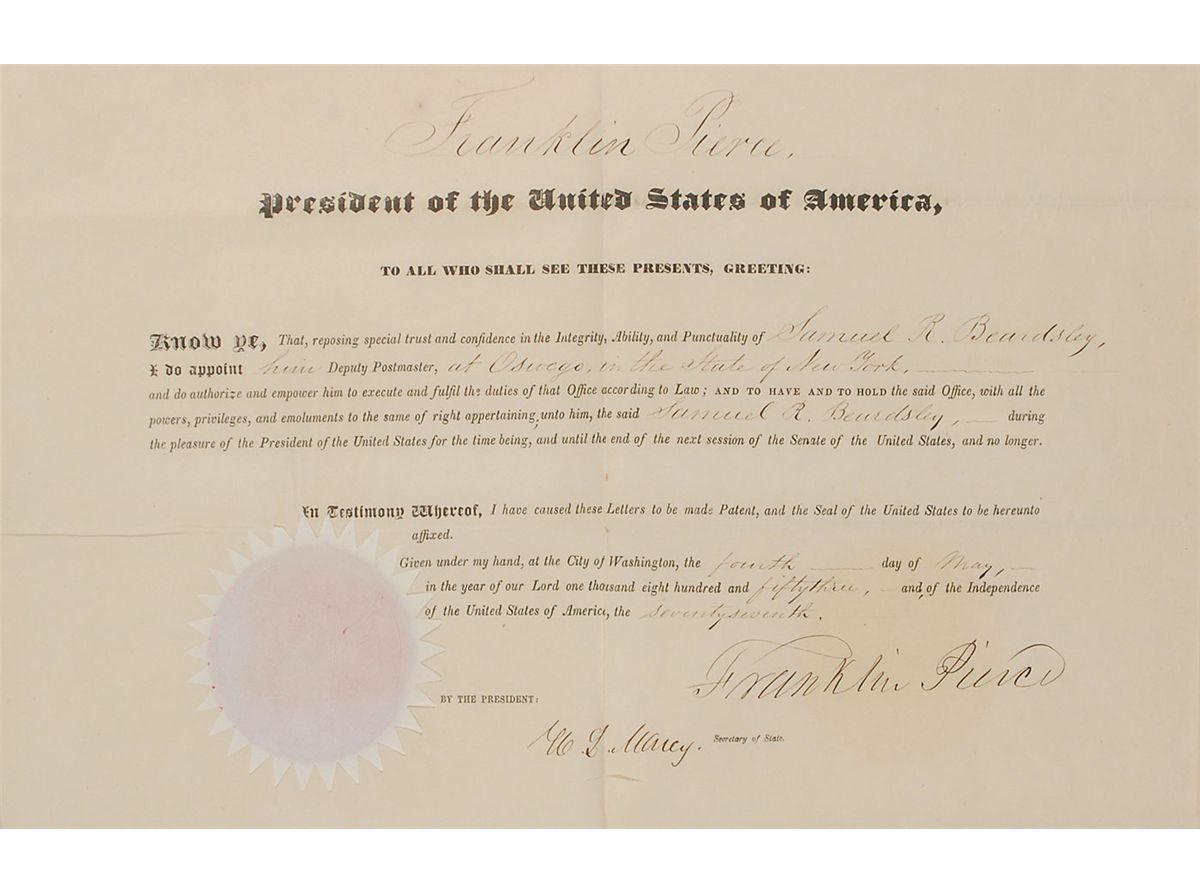 Franklin Pierce,
President of the United States of America,
TO ALL WHO SHALL SEE THESE PRESENTS, GREETING:
Know ye, That, reposing special trust and confidence in the Integrity, Ability, and Punctuality of Samuel R. Beardsley,
I do appoint him Deputy Postmaster, at Oswego, in the State of New York,
and do authorize and empower him to execute and fulfil the duties of that Office according to Law; AND TO HAVE AND TO HOLD the said Office, with all the
powers, privileges, and emoluments to the same of right appertaining, unto him, the said Samuel R. Beardsley, — during
the pleasure of the President of the United States for the time being, and until the end of the next session of the Senate of the United States, and no longer.
In Testimony Whereof, I have caused these Letters to be made Patent, and the Seal of the United States to be hereunto
affixed.
Given under my hand, at the City of Washington, the fourth — day of May, —
in the year of our Lord one thousand eight hundred and fiftythree, — and, of the Independence
of the United States of America, the seventyseventh.
Franklin Pierce
BY THE PRESIDENT:
W. L. Marcy. Secretary of State.